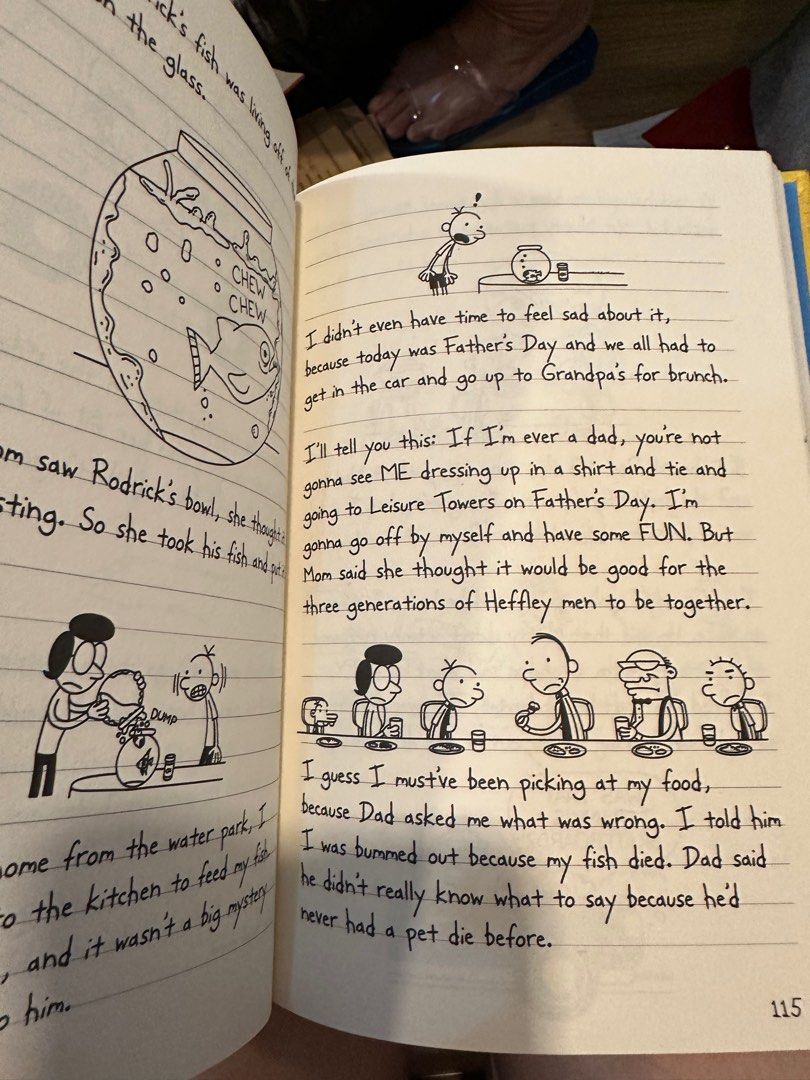 ick's fish was living off of
the glass.
CHEW
CHEW
om saw Rodrick's bowl, she thought
sting. So she took his fish and put
DUMP
ome from the water park, I
o the kitchen to feed my fish
, and it wasn't a big mystery
o him.
!
I didn't even have time to feel sad about it,
because today was Father's Day and we all had to
get in the car and go up to Grandpa's for brunch.
I'll tell you this: If I'm ever a dad, you're not
gonna see ME dressing up in a shirt and tie and
going to Leisure Towers on Father's Day. I'm
gonna go off by myself and have some FUN. But
Mom said she thought it would be good for the
three generations of Heffley men to be together.
I guess I must've been picking at my food,
because Dad asked me what was wrong. I told him
I was bummed out because my fish died. Dad said
he didn't really know what to say because he'd
never had a pet die before.
115